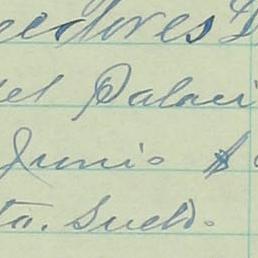 eedores D
del Palaci
Junio $
ta. Sueldo.